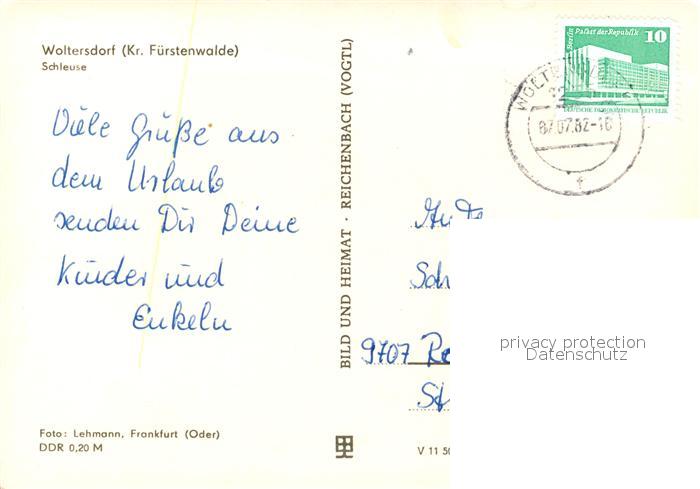 Woltersdorf (Kr. Fürstenwalde)
Schleuse
Viele Grüße aus
dem Urlaub
senden Dir Deine
Kinder und
Enkeln
Foto: Lehmann, Frankfurt (Oder)
DDR 0,20 M
BILD UND HEIMAT · REICHENBACH (VOGTL)
V 11 50
Berlin Palast der Republik
10
DEUTSCHE DEMOKRATISCHE REPUBLIK
07.07.82-16
f
9707
privacy protection
Datenschutz